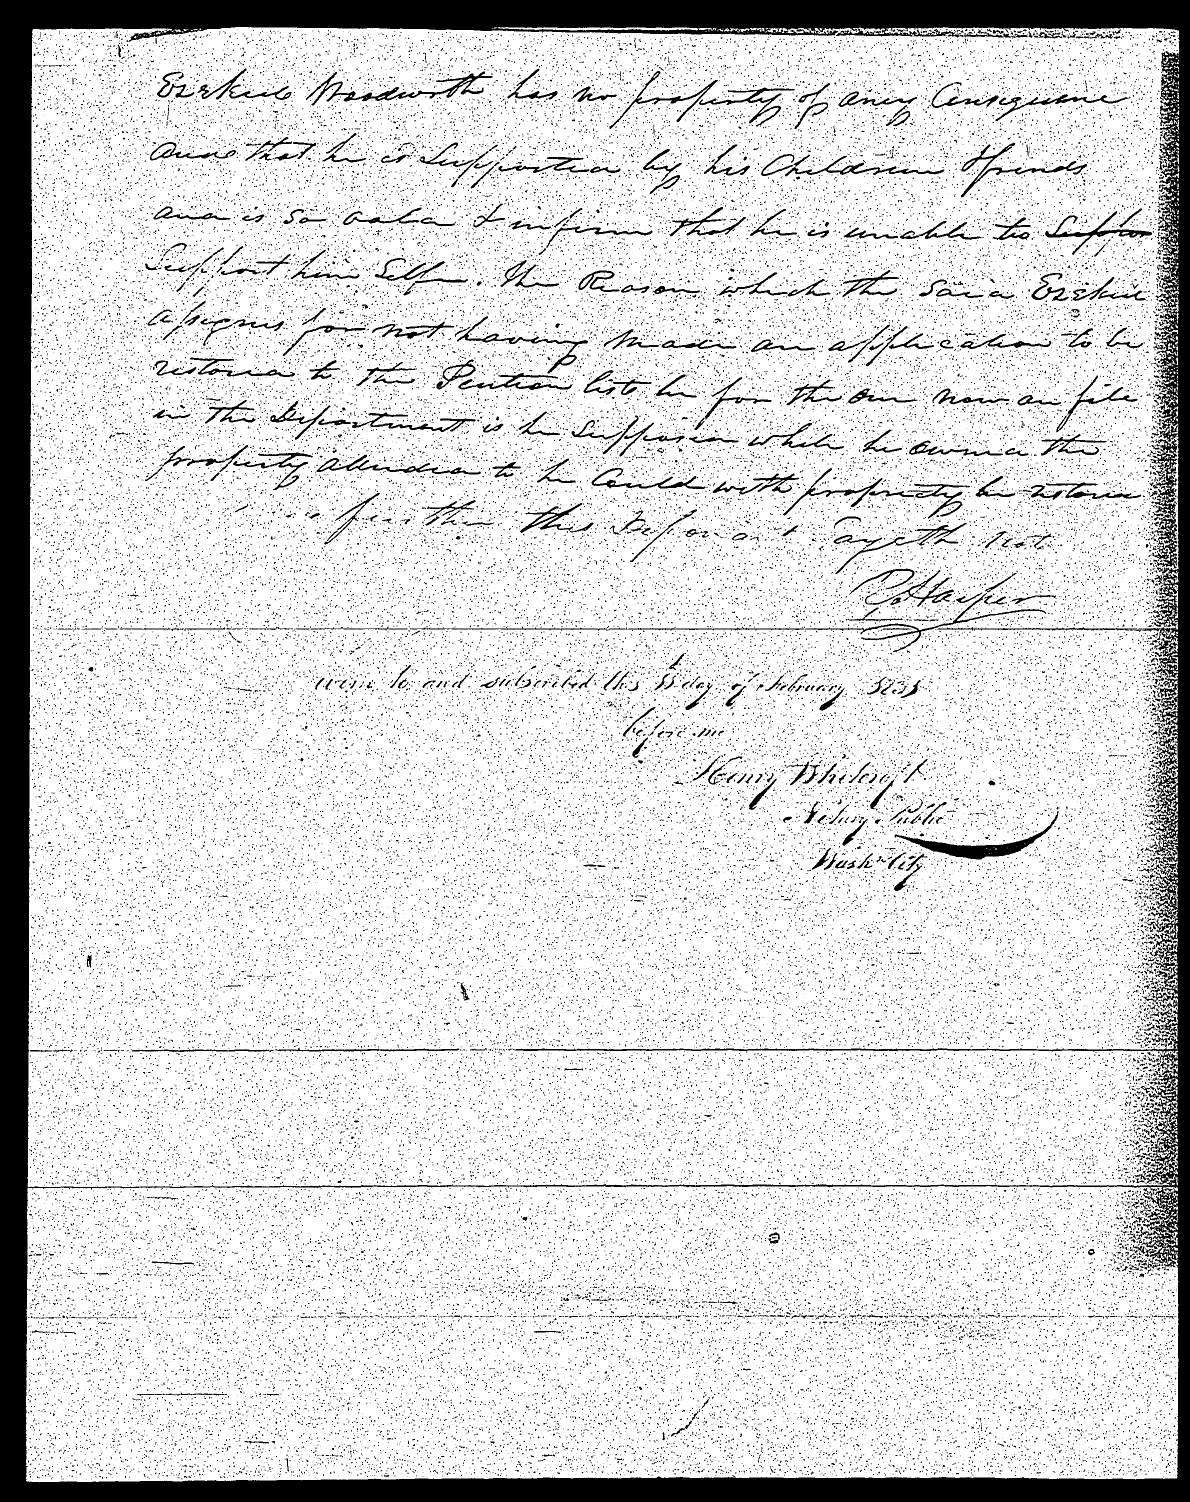 Ezekiel Woodworth has no property of aney Consequence
and that he is Supported by his Children & frends
and is so old & infirm that he is unable to Suppor
Support him Self. The Reason which the Said Ezekiel
assignes for not having made an application to be
restored to the Pention liste be for the one now on file
in the Department is he Supposed while he owned the
property alluded to he Could with propriety be restored
further this Deponant Sayeth not
Harper
to and subscribed this day of February 1831
before me
Henry Whitcroft
Notary Public
Washn City